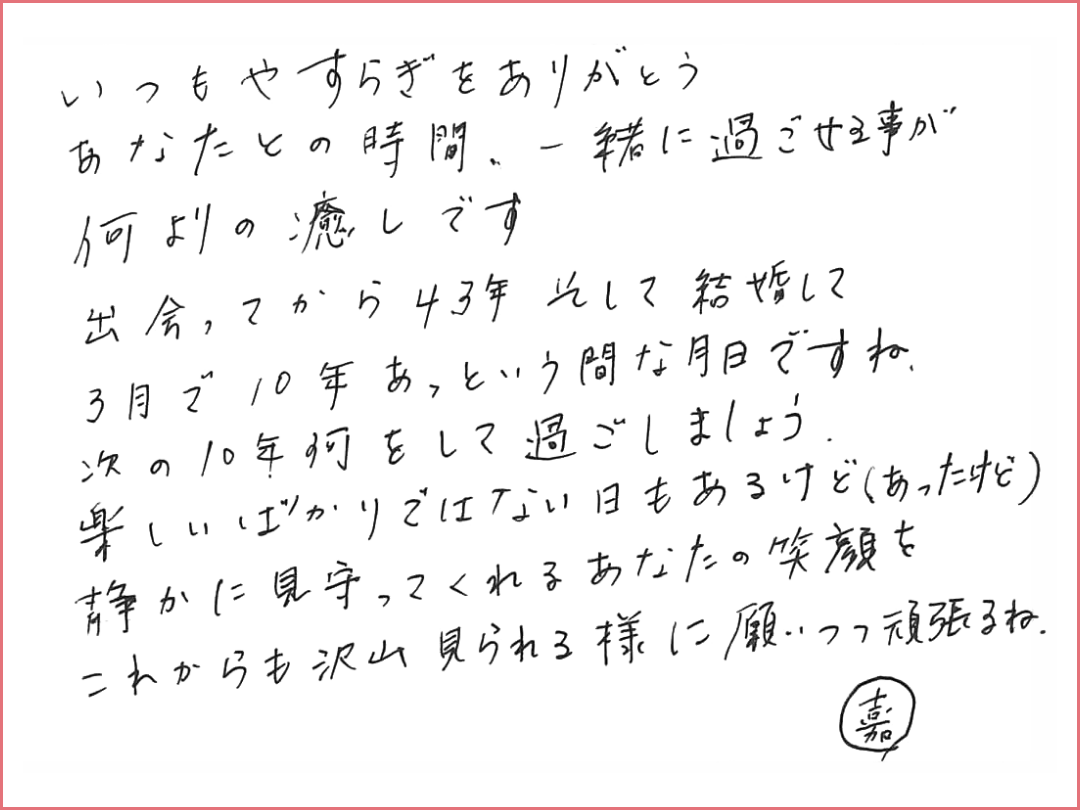 いつもやすらぎをありがとう
あなたとの時間、一緒に過ごせる事が
何よりの癒しです
出会ってから43年 そして結婚して
3月で10年あっという間な月日ですね.
次の10年何をして過ごしましょう.
楽しいばかりではない日もあるけど(あったけど)
静かに見守ってくれるあなたの笑顔を
これからも沢山見られる様に願いつつ頑張るね.
嘉